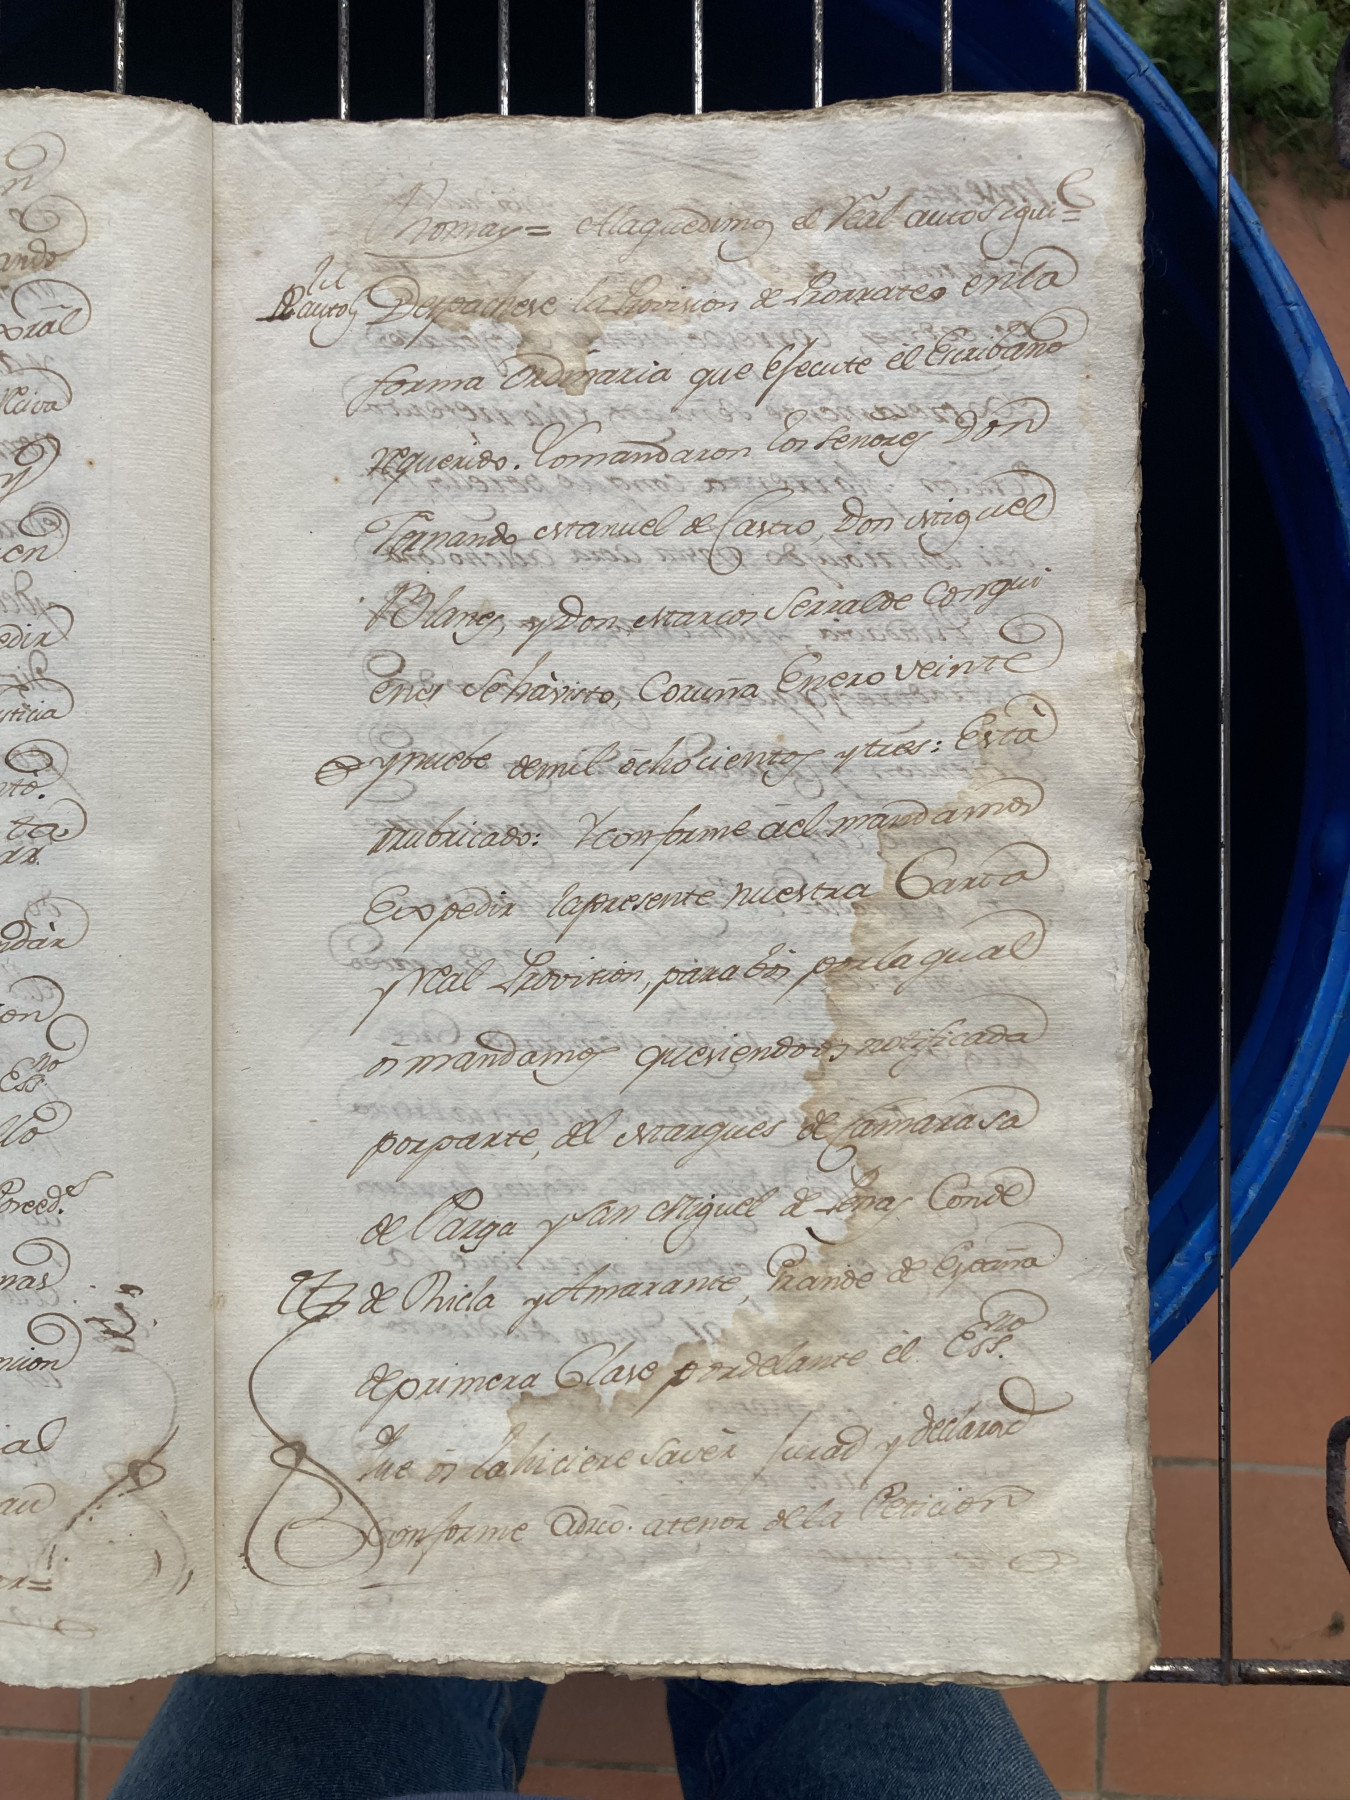 Romay= Alaquedimos el Real auto sigui=
Rl auto
Despachese la Provision de Prorrateo enla
forma Ordinaria que Efecute el Escribano
requerido. Lomandaron los senores Don
Fernando Manuel de Castro, Don Miguel
Blanes, y Don Marcos Serralde Congui
enes Sehàvisto, Coruña Enero veinte
ynuebe demil òchocientos ytres: Està
rrubricado: Yconforme àel mandamos
Expedir lapresente nuestra Carta
yReal Provision, para bos por la qual
os mandamos quesiendoos notificada
porparte, del Marques de Camarasa
de Parga y san Miguel de Penas Conde
de Ricla y Amarante, Grande de España
deprimera Clase pordelante él Essno.
que os lahiciere savèr Jurad y declarad
Conforme àdro. atenor dela Peticion